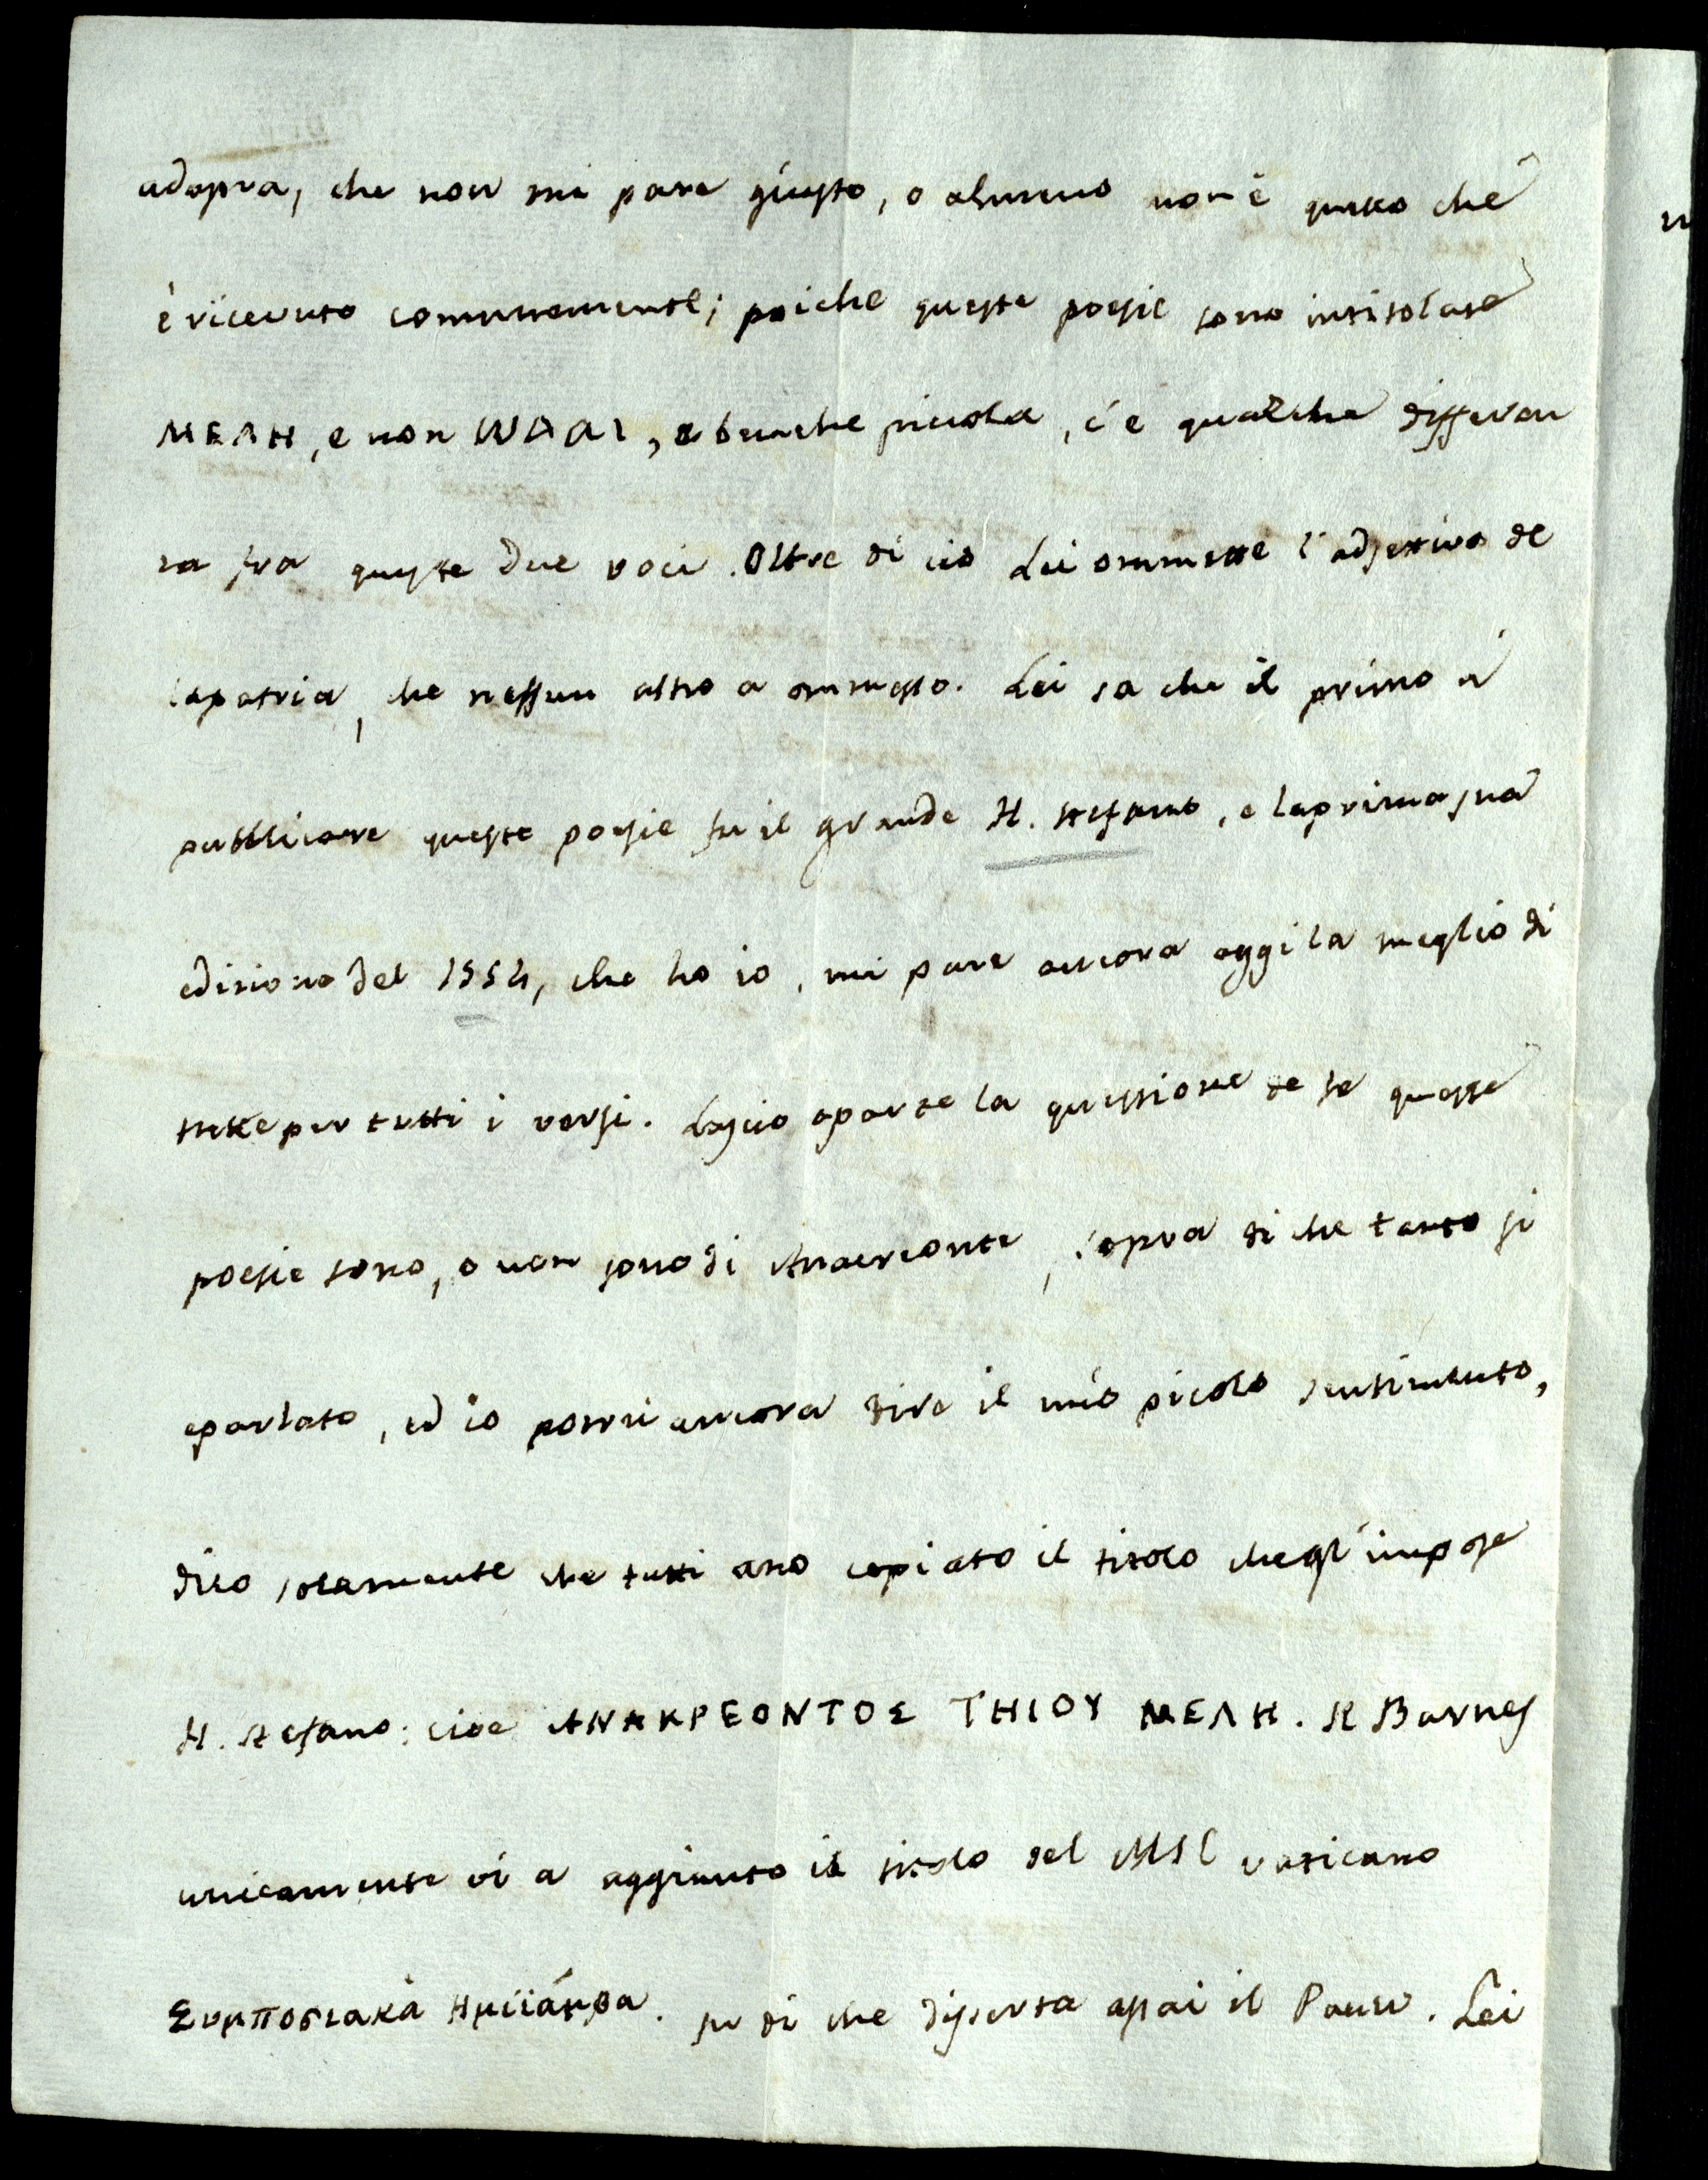 adopra, che non mi pare giusto, o almeno non è quello che
è ricevuto comunemente; poiche queste poesie sono intitolate
ΜΕΛΗ, e non ΩΔΑΙ, e benche picola, c'e qualche differen
za fra queste due voci. Oltre di cio Lei ommette l'adjettivo de
la patria, che nessun altro a ommesso. Lei sa che il primo a
pubblicare queste poesie fu il grande H. Stefano, e la prima sua
edizione del 1554, che ho io, mi pare ancora oggi la meglio di
tutte per tutti i versi. Lascio aparte la questione se queste
poesie sono, o non sono di Anacreonte, sopra di che tanto si
e parlato, ed io potrei ancora dire il mio picolo sentimento,
dico solamente che tutti ano copiato il titolo che gl'impose
H. Stefano: cioe ΑΝΑΚΡΕΟΝΤΟΣ ΤΗΙΟΥ ΜΕΛΗ. Il Barnes
unicamente vi a aggiunto il titolo del MSC vaticano
Συμποσιακὰ Ημιάμβα. su di che diserta assai il Pauw. Lei